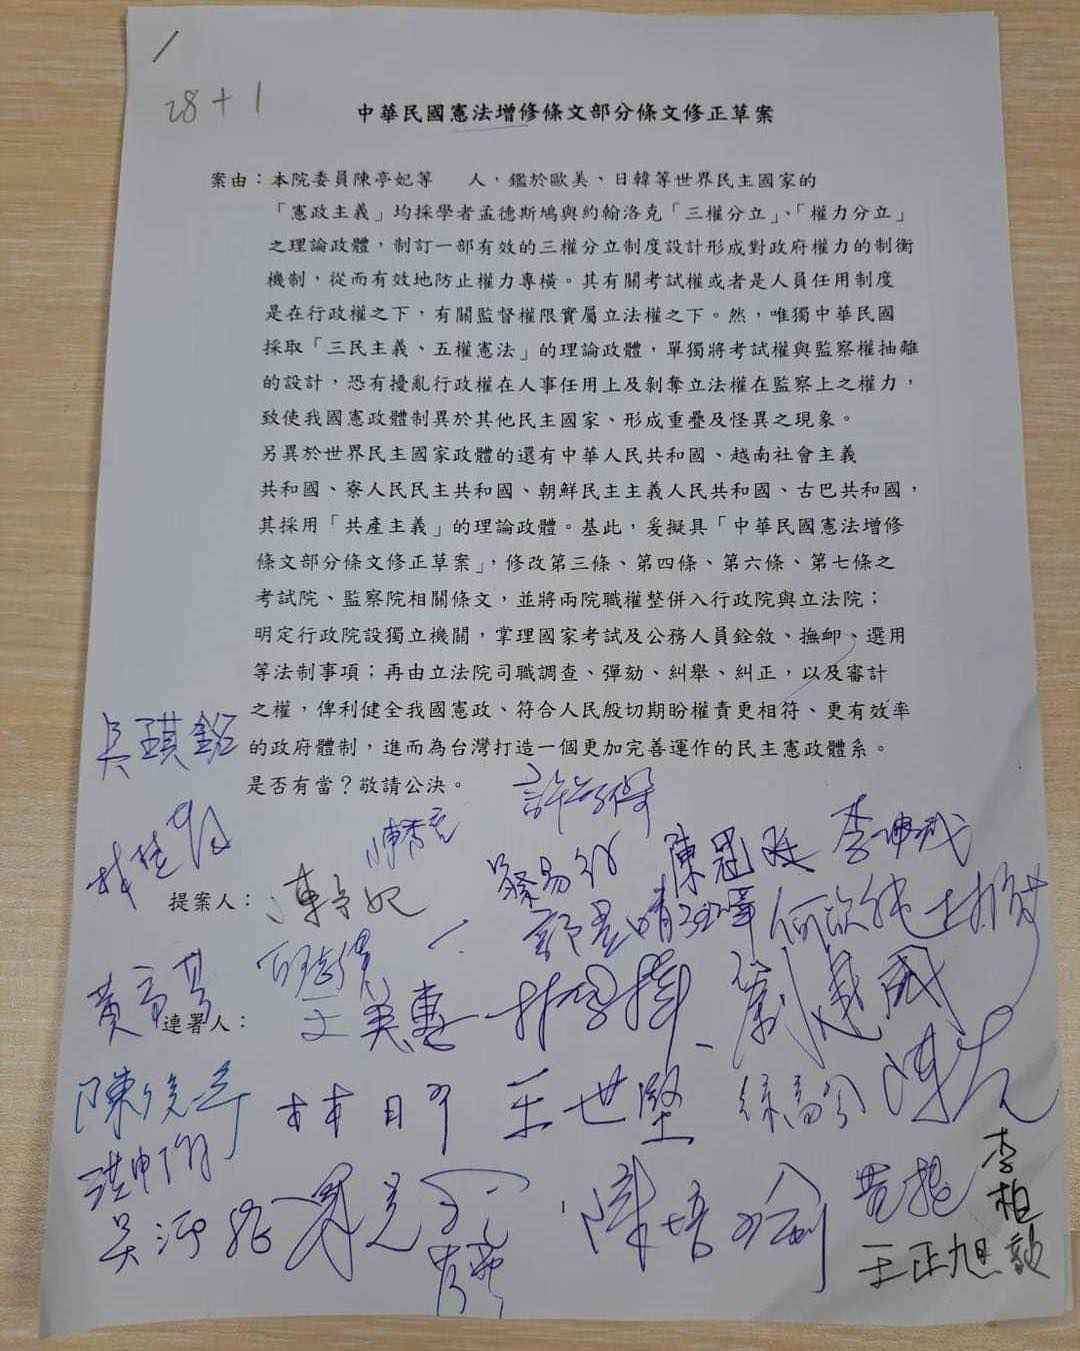 28+1
中華民國憲法增修條文部分條文修正草案
案由：本院委員陳亭妃等　人，鑑於歐美、日韓等世界民主國家的
「憲政主義」均採學者孟德斯鳩與約翰洛克「三權分立」、「權力分立」
之理論政體，制訂一部有效的三權分立制度設計形成對政府權力的制衡
機制，從而有效地防止權力專橫。其有關考試權或者是人員任用制度
是在行政權之下，有關監督權限實屬立法權之下。然，唯獨中華民國
採取「三民主義、五權憲法」的理論政體，單獨將考試權與監察權抽離
的設計，恐有擾亂行政權在人事任用上及剝奪立法權在監察上之權力，
致使我國憲政體制異於其他民主國家、形成重疊及怪異之現象。
另異於世界民主國家政體的還有中華人民共和國、越南社會主義
共和國、寮人民民主共和國、朝鮮民主主義人民共和國、古巴共和國，
其採用「共產主義」的理論政體。基此，爰擬具「中華民國憲法增修
條文部分條文修正草案」，修改第三條、第四條、第六條、第七條之
考試院、監察院相關條文，並將兩院職權整併入行政院與立法院；
明定行政院設獨立機關，掌理國家考試及公務人員銓敘、撫卹、選用
等法制事項；再由立法院司職調查、彈劾、糾舉、糾正，以及審計
之權，俾利健全我國憲政、符合人民殷切期盼權責更相符、更有效率
的政府體制，進而為台灣打造一個更加完善運作的民主憲政體系。
是否有當？敬請公決。
吳琪銘
陳秀宝
陳冠廷
李坤城
提案人：
陳亭妃
何欣純
王美惠
林俊憲
劉建國
連署人：
陳俊宇
林月琴
王世堅
徐富癸
洪申翰
吳沛憶
陳培瑜
黃捷
李柏毅
王正旭